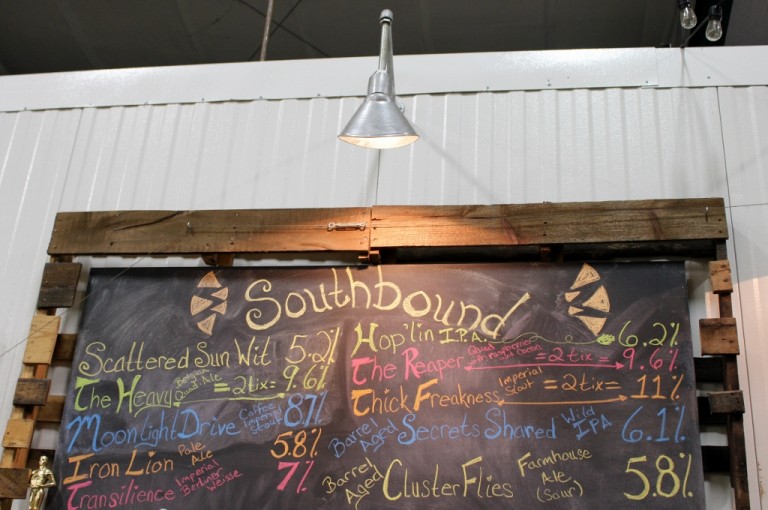 Southbound
Scattered Sun Wit 5.2%
The Heavy Belgian Quad Ale =2tix= 9.6%
Moonlight Drive Coffee Imperial Stout 8%
Iron Lion Pale Ale 5.8%
Transilience Imperial Berliner Weisse 7%
Hop'lin I.P.A. 6.2%
The Reaper Quad =2tix= 9.6%
Thick Freakness Imperial Stout =2tix= 11%
Barrel Aged Secrets Shared Wild IPA 6.1%
Barrel Aged Cluster Flies Farmhouse Ale (Sour) 5.8%